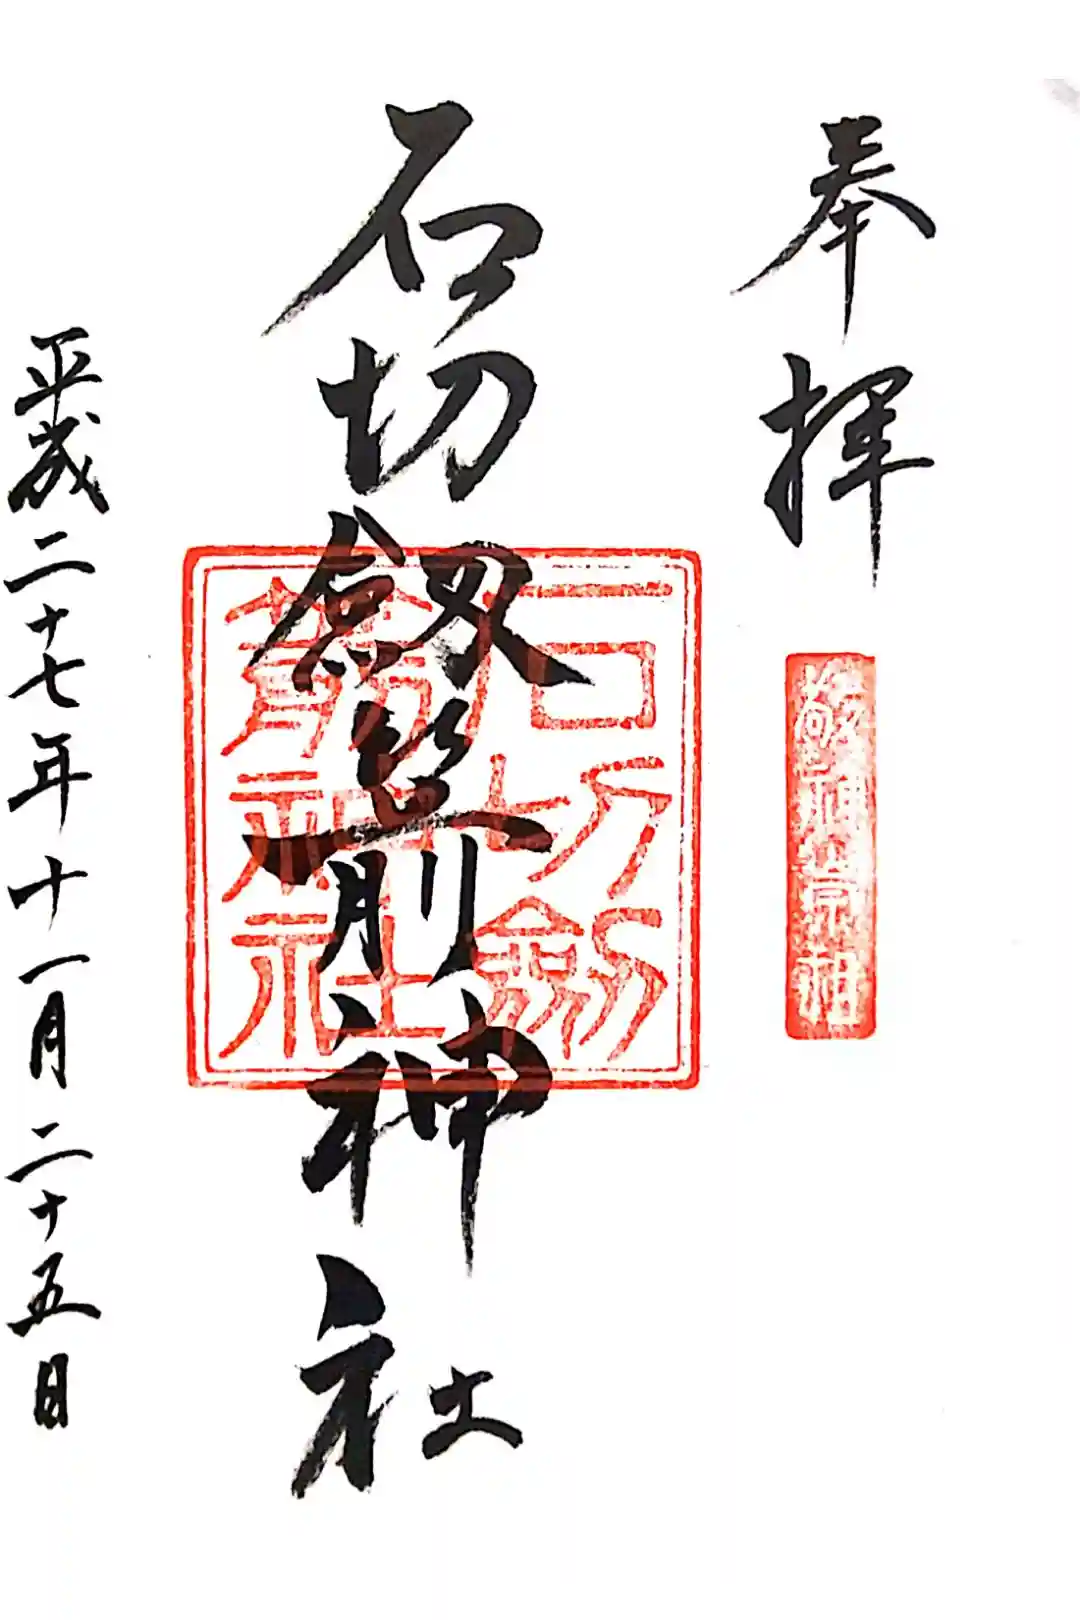 奉拝
敬神崇祖
石切劔箭神社
石切劔箭神社
平成二十七年十一月二十五日